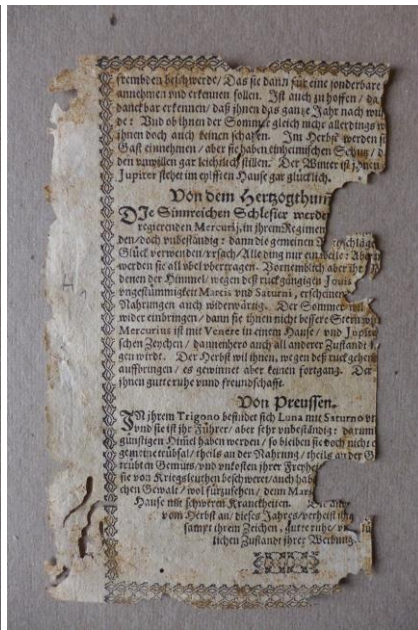 frembden beschwerde/ Das sie dann für eine sonderbare
annehmen vnd erkennen sollen. Ist auch zu hoffen/ da
danckbar erkennen/ daß jhnen das gantze Jahr nach wü
de: Vnd ob jhnen der Sommer gleich nicht allerdings
jhnen doch auch keinen schaden. Im Herbst werden
Gast einnehmen/ aber sie haben einheimischen Schutz/
den vnwillen gar leichtlich stillen. Der Winter ist jhnen
Jupiter stehet im eylfften Hause gar glücklich.
Von dem Hertzogthum
DIe Sinnreichen Schlesier werde
regierenden Mercurij, in jhrem Regimen
den/ doch vnbeständig: dann die gemeinen
Glück verwenden/ vrsach/ Alle ding nur ein weile: Aber
werden sie all vbel vbertragen. Vornemblich aber
denen der Himmel/ wegen deß rückgängigen Jouis
vngestümmigkeit Martis vnd Saturni, erscheinen
Nahrungen auch widerwärtig. Der Sommer
wider einbringen/ dann sie jhnen nicht bessere Stern
Mercurius ist mit Venere in einem Hause/ vnd Jupiter
schen Zeychen/ dannenhero auch all anderer Zustandt
gen wirdt. Der Herbst wil jhnen, wegen deß rück
auffbringen/ es gewinnet aber keinen fortgang. Der
jhnen gutte ruhe vnnd freundschafft.
Von Preussen.
IN jhrem Trigono befindet sich Luna mit Saturno
vnd sie ist jhr Führer/ aber sehr vnbeständig: darum
günstigen Himel haben werden/ so bleiben sie doch nicht
gemeine trübsal/ theils an der Nahrung/ theils an der G
trübten Gemüts/ vnd vnkosten jhrer Freyheit
sie von Kriegsleuthen beschweret/ auch
chen Gewalt/ wol fürzusehen/ denn Mars
Hause mit schweren Kranckheiten.
vom Herbst an/ dieses Jahres/ verheist
sampt jhrem Zeichen, gutte ruhe/
lichen Zustandt jhrer Werbung.